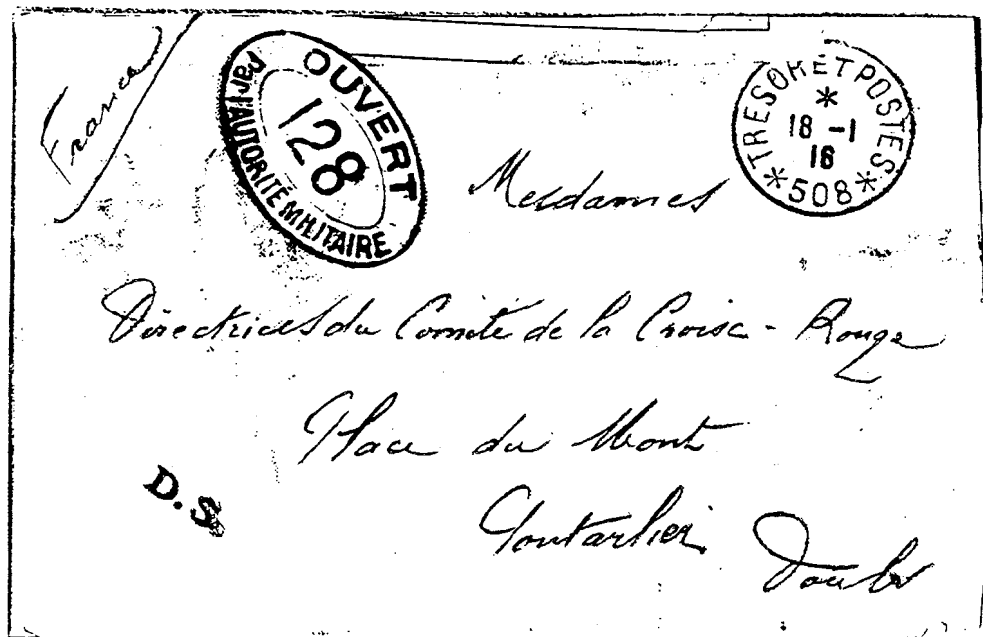 France
OUVERT
128
Par l'AUTORITÉ MILITAIRE
* TRESOR ET POSTES *
*
18 - 1
16
508
Mesdames
Directrices du Comité de la Croix - Rouge
Place du Mont
Pontarlier
Doubs
D.S